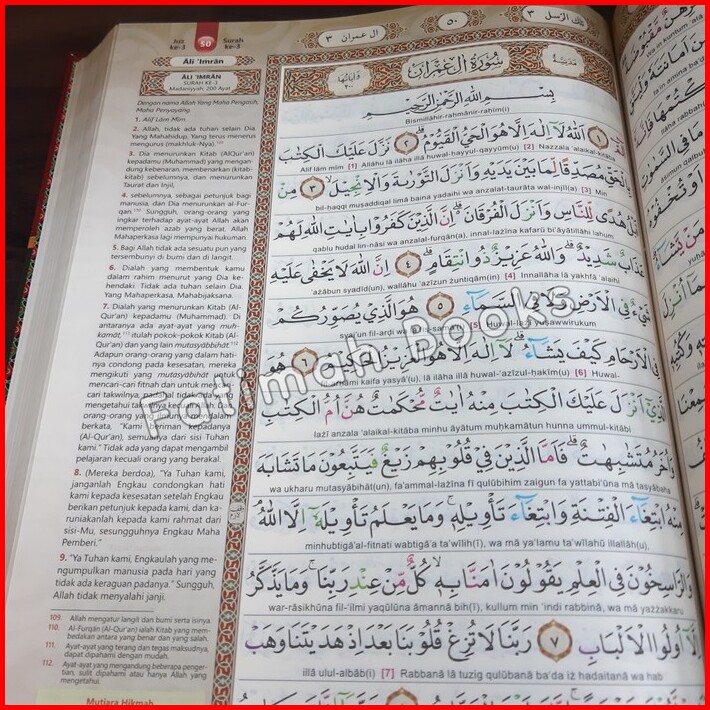 Juz ke-3 50 Surah ke-3
ال عمران ٣
٥٠
تلك الرسل ٣
Āli 'Imrān
ĀLI 'IMRĀN
SURAH KE-3
Madaniyyah, 200 Ayat
Dengan nama Allah Yang Maha Pengasih,
Maha Penyayang
1. Alif Lām Mīm.
2. Allah, tidak ada tuhan selain Dia.
Yang Mahahidup, Yang terus menerus
mengurus (makhluk-Nya).
3. Dia menurunkan Kitab (AlQur'an)
kepadamu (Muhammad) yang mengan-
dung kebenaran, membenarkan (kitab-
kitab) sebelumnya, dan menurunkan
Taurat dan Injil,
4. sebelumnya, sebagai petunjuk bagi
manusia, dan Dia menurunkan al-Fur-
qan. Sungguh, orang-orang yang
ingkar terhadap ayat-ayat Allah akan
memperoleh azab yang berat. Allah
Mahaperkasa lagi mempunyai hukuman.
5. Bagi Allah tidak ada sesuatu pun yang
tersembunyi di bumi dan di langit.
6. Dialah yang membentuk kamu
dalam rahim menurut yang Dia ke-
hendaki. Tidak ada tuhan selain Dia,
Yang Mahaperkasa, Mahabijaksana.
7. Dialah yang menurunkan Kitab (Al-
Qur'an) kepadamu (Muhammad). Di
antaranya ada ayat-ayat yang muh-
kamāt, itulah pokok-pokok Kitab (Al-
Qur'an) dan yang lain mutasyābihāt.
Adapun orang-orang yang dalam hati-
nya condong pada kesesatan, mereka
mengikuti yang mutasyābihāt untuk
mencari-cari fitnah dan untuk men-
cari takwilnya,
mengetahui tak
orang-orang
berkata, "Kami kepadanya
(Al-Qur'an), semuanya dari sisi Tuhan
kami." Tidak ada yang dapat mengambil
pelajaran kecuali orang yang berakal.
8. (Mereka berdoa), "Ya Tuhan kami,
janganlah Engkau condongkan hati
kami kepada kesesatan setelah Engkau
berikan petunjuk kepada kami, dan ka-
runiakanlah kepada kami rahmat dari
sisi-Mu, sesungguhnya Engkau Maha
Pemberi."
9. "Ya Tuhan kami, Engkaulah yang me-
ngumpulkan manusia pada hari yang
tidak ada keraguan padanya." Sungguh,
Allah tidak menyalahi janji.
109. Allah mengatur langit dan bumi serta isinya.
110. Al-Furqān (Al-Qur'an) ialah Kitab yang mem-
bedakan antara yang benar dan yang salah.
111. Ayat-ayat yang terang dan tegas maksudnya,
dapat dipahami dengan mudah.
112. Ayat-ayat yang mengandung beberapa penger-
tian, sulit dipahami atau hanya Allah yang
mengetahui.
Mutiara Hikmah
سورة آل عمران
مدنية
بسم الله الرحمن الرحيم
Bismillāhir-rahmānir-rahīm(i)
١ الله لا اله الا هو الحي القيوم ٢ نزل عليك الكتب
Alif lām mīm [1] Allāhu lā ilāha illā huwal-hayyul-qayyūm(u) [2] Nazzala 'alaikal-kitāba
بالحق مصدقا لما بين يديه وانزل التورىة والانجيل ٣ من
bil-haqqi muṣaddiqal limā baina yadaihi wa anzalat-taurāta wal-injīl(a) [3] Min
قبل هدى للناس وانزل الفرقان ان الذين كفروا بايت الله لهم
qablu hudal lin-nāsi wa anzalal-furqān(a), innal-lazīna kafarū bi'āyātillāhi lahum
عذاب شديد والله عزيز ذو انتقام ٤ ان الله لا يخفى عليه
'ażābun syadīd(un), wallāhu 'azīzun żuntiqām(in) [4] Innallāha lā yakhfā 'alaihi
شيء فى الارض ولا فى السماء ٥ هو الذي يصوركم
syai'un fil-arḍi wa lā fis-samā'(i) [5] Huwal-lażī yuṣawwirukum
فى الارحام كيف يشاء لا اله الا هو العزيز الحكيم ٦ هو
fil-arḥāmi kaifa yasyā'(u), lā ilāha illā huwal-'azīzul-ḥakīm(u) [6] Huwal-
الذي انزل عليك الكتب منه ايت محكمت هن ام الكتب
lażī anzala 'alaikal-kitāba minhu āyātum muḥkamātun hunna ummul-kitābi
واخر متشبهت فاما الذين في قلوبهم زيغ فيتبعون ما تشابه
wa ukharu mutasyābihāt(un), fa'ammal-lażīna fī qulūbihim zaigun fa yattabi'ūna mā tasyābaha
منه ابتغاء الفتنة وابتغاء تأويله وما يعلم تأويله الا الله
minhubtigā'al-fitnati wabtigā'a ta'wīlih(ī), wa mā ya'lamu ta'wīlahū illallāh(u),
والراسخون في العلم يقولون امنا به كل من عند ربنا وما يذكر
war-rāsikhūna fil-'ilmi yaqūlūna āmannā bih(ī), kullum min 'indi rabbinā, wa mā yażżakkaru
الا اولوا الالباب ٧ ربنا لا تزغ قلوبنا بعد اذ هديتنا وهب
illā ulul-albāb(i) [7] Rabbanā lā tuzig qulūbanā ba'da iż hadaitanā wa hab
Fatimah Books